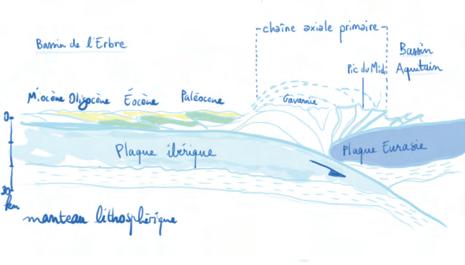 -chaîne axiale primaire-
Bassin de l'Erbre
Bassin
Aquitain
Pic du Midi
Miocène Oligocène Éocène Paléocène
Gavarnie
0
Plaque ibérique
Plaque Eurasie
km
manteau lithosphérique